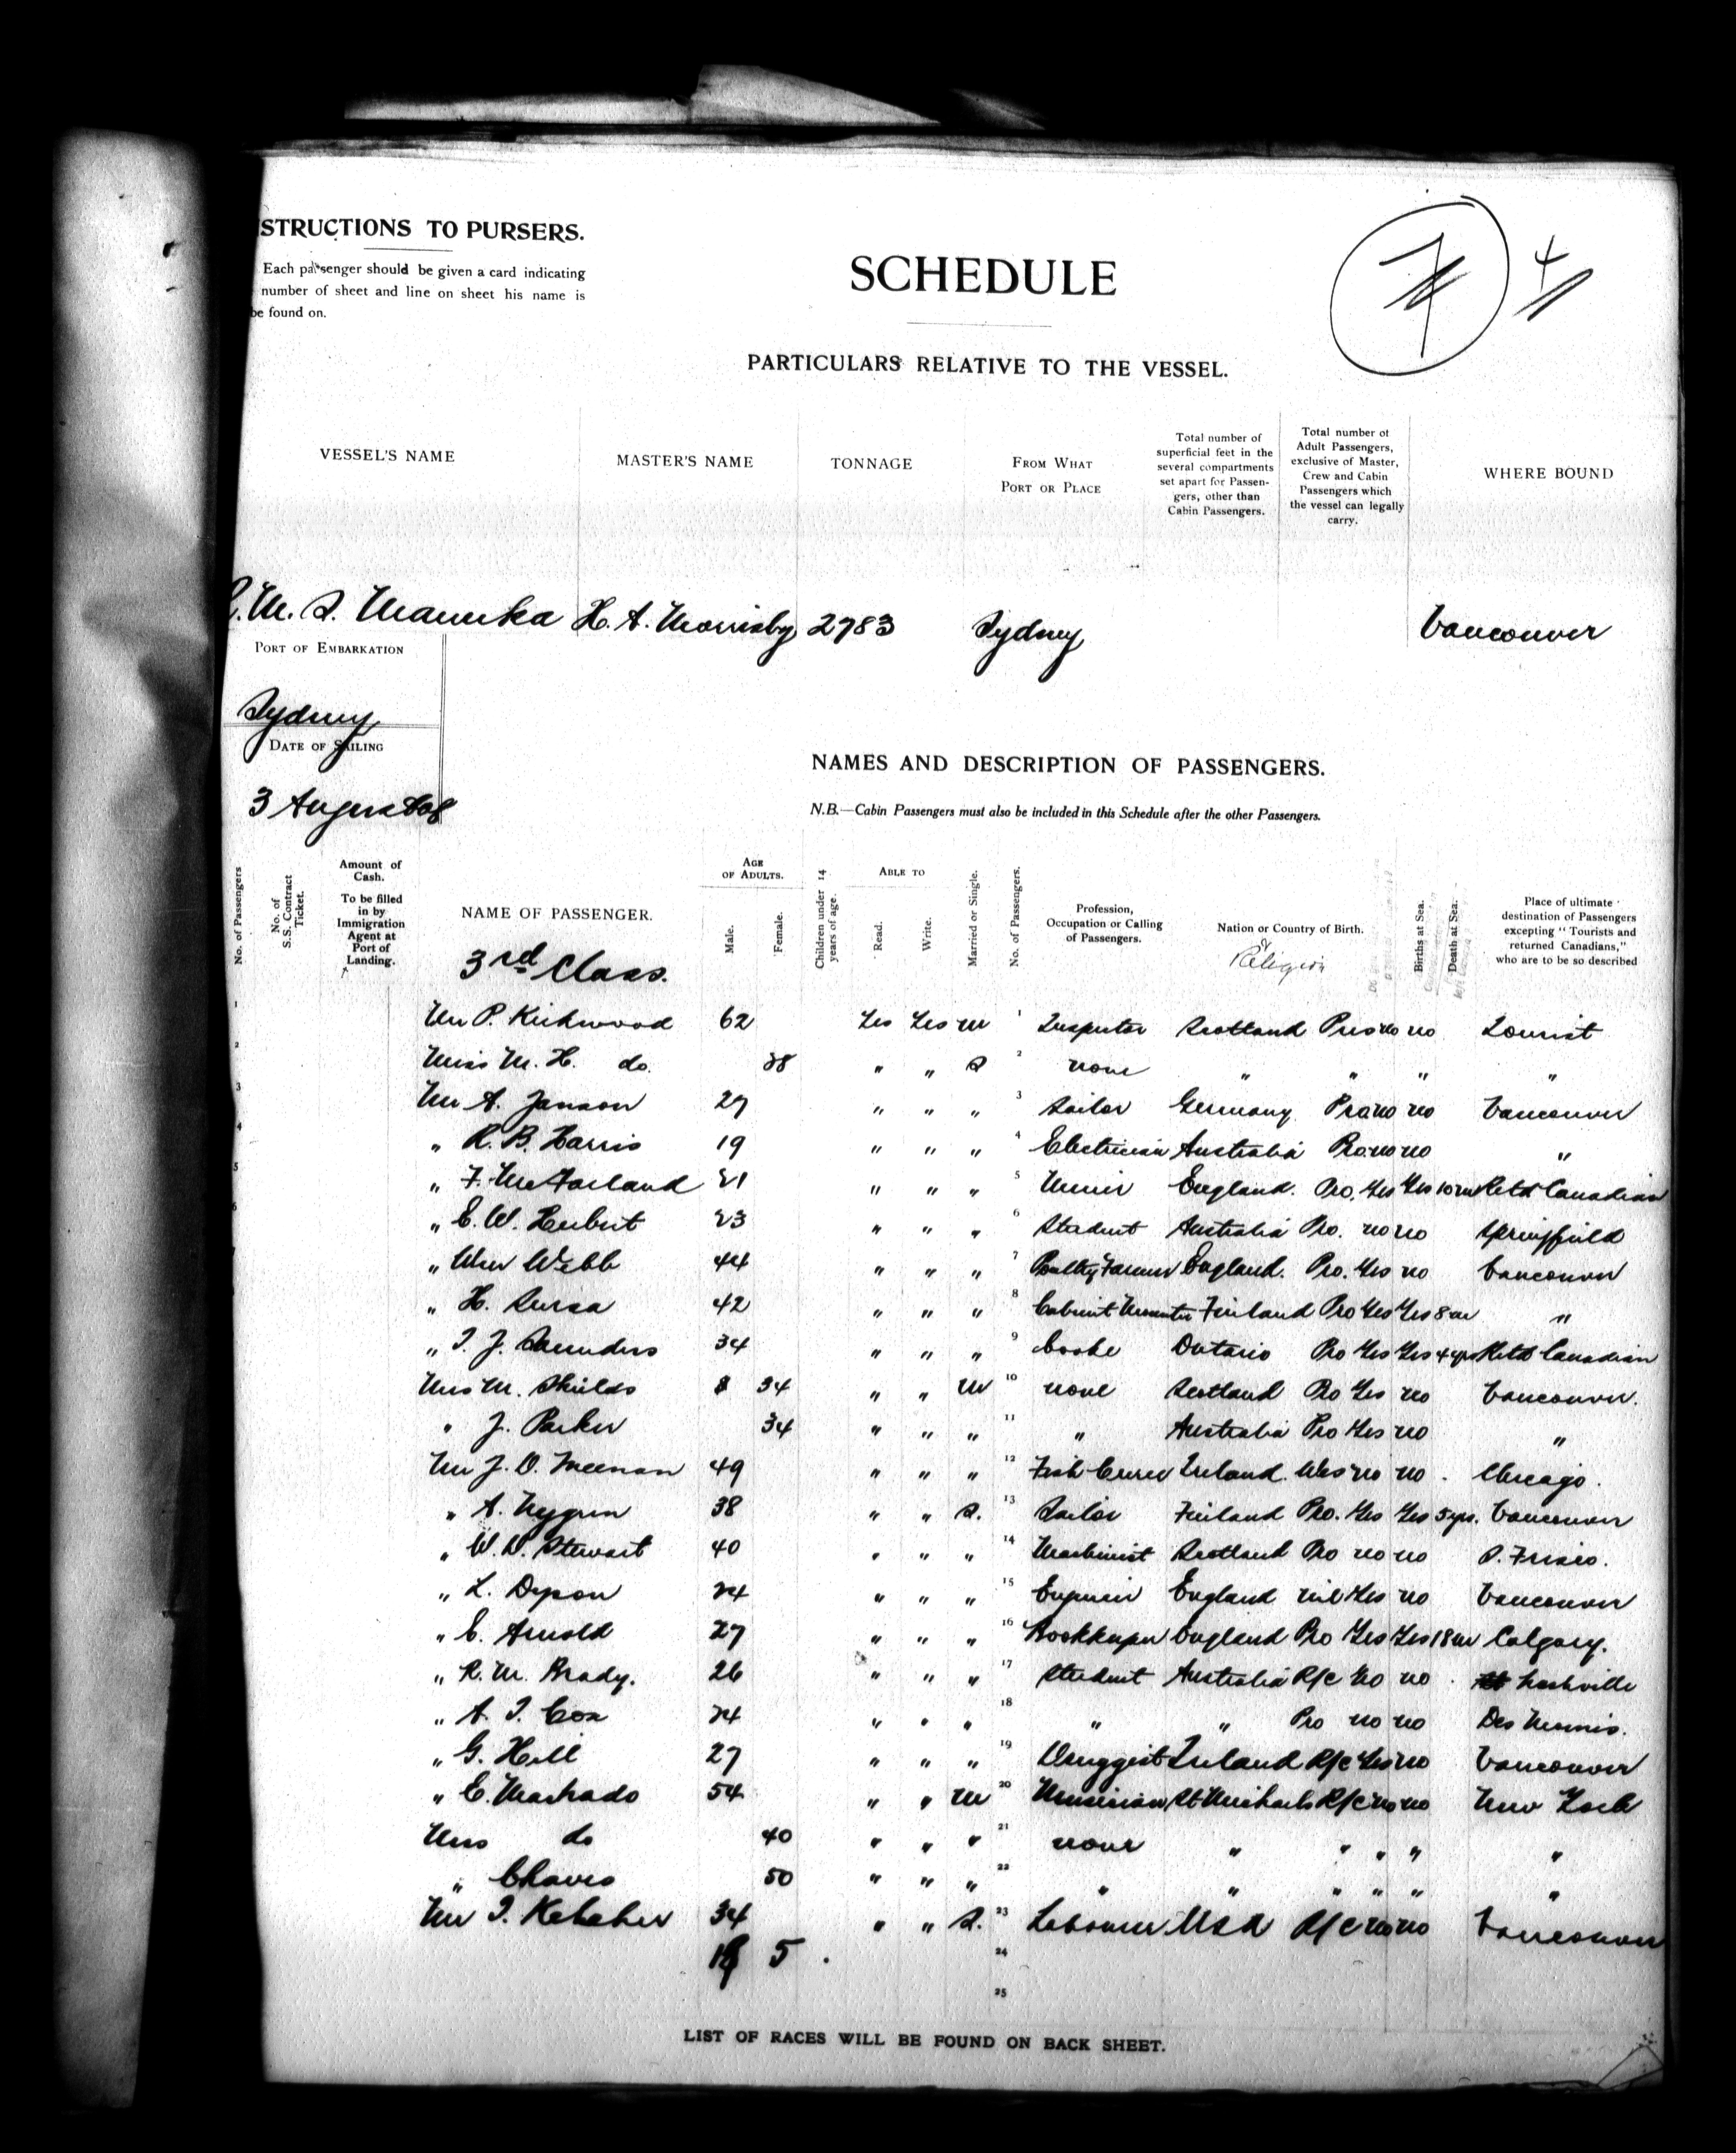 STRUCTIONS TO PURSERS.
Each passenger should be given a card indicating
number of sheet and line on sheet his name is
be found on.
SCHEDULE
PARTICULARS RELATIVE TO THE VESSEL.
VESSEL'S NAME
MASTER'S NAME
TONNAGE
FROM WHAT
PORT OR PLACE
Total number of
superficial feet in the
several compartments
set apart for Passen-
gers, other than
Cabin Passengers.
Total number of
Adult Passengers,
exclusive of Master,
Crew and Cabin
Passengers which
the vessel can legally
carry.
WHERE BOUND
M. S. Manuka H. A. Morrisby 2783 Sydney Vancouver
PORT OF EMBARKATION
Sydney
DATE OF SAILING
3 August 08
NAMES AND DESCRIPTION OF PASSENGERS.
N.B.—Cabin Passengers must also be included in this Schedule after the other Passengers.
No. of Passengers
No. of
S.S. Contract
Ticket.
Amount of
Cash.
To be filled
in by
Immigration
Agent at
Port of
Landing.
NAME OF PASSENGER.
3rd Class.
AGE
OF ADULTS.
Male.
Female.
Children under 14
years of age.
ABLE TO
Read.
Write.
Married or Single.
No. of Passengers.
Profession,
Occupation or Calling
of Passengers.
Nation or Country of Birth.
& Religion
Births at Sea.
Death at Sea.
Place of ultimate
destination of Passengers
excepting "Tourists and
returned Canadians,"
who are to be so described
1 Mr P. Kirkwood 62 Yes Yes M 1 Inspector Scotland Pres no no Tourist
2 Miss M. H. do. 28 " " S 2 none " " " "
3 Mr A. Janson 27 " " " 3 Sailor Germany Pro no no Vancouver
4 " R. B. Harris 19 " " " 4 Electrician Australia Pro. no no "
5 " F. McFarland 21 " " " 5 Miner England. Pro. Yes Yes 10 m Retd Canadian
6 " C. W. Herbert 23 " " " 6 Student Australia Pro. no no Springfield
7 " Wm Webb 44 " " " 7 Poultry Farmer England. Pro. Yes no Vancouver
" H. 42 " " " 8 Cabinet Finland Pro Yes Yes 8 m "
" T. J. Saunders 34 " " " 9 Cooke Ontario Pro Yes Yes 4 yrs Retd Canadian
Mrs M. Shields 34 " " M 10 none Scotland Pro Yes no Vancouver.
" J. Parker 34 " " " 11 " Australia Pro Yes no "
Mr J. D. 49 " " " 12 Fish Curer Ireland. Wes no no. Chicago.
" A. Nygren 38 " " S. 13 Sailor Finland Pro. Yes Yes 5 yrs. Vancouver
" W. D. Stewart 40 " " " 14 Machinist Scotland Pro no no S. Frisco.
" L. Dyson 24 " " " 15 Engineer England nil Yes no Vancouver
" C. Arnold 27 " " " 16 Bookkeeper England Pro Yes Yes 18 m Calgary.
" R. M. Brady. 26 " " " 17 Student Australia R/C no no. Nashville
" A. T. Cox 24 " " " 18 " " Pro no no Des Moines.
" G. Hill 27 " " " 19 Druggist Ireland R/C Yes no Vancouver
" C. Machado 54 " " M 20 Musician St Michaels R/C no no New York
Mrs do 40 " " " 21 none " " " " "
" Chaves 50 " " " 22 " " " " " "
Mr T. Kelleher 34 " " S. 23 Labourer USA R/C no no Vancouver
18 5 . 24
25
LIST OF RACES WILL BE FOUND ON BACK SHEET.